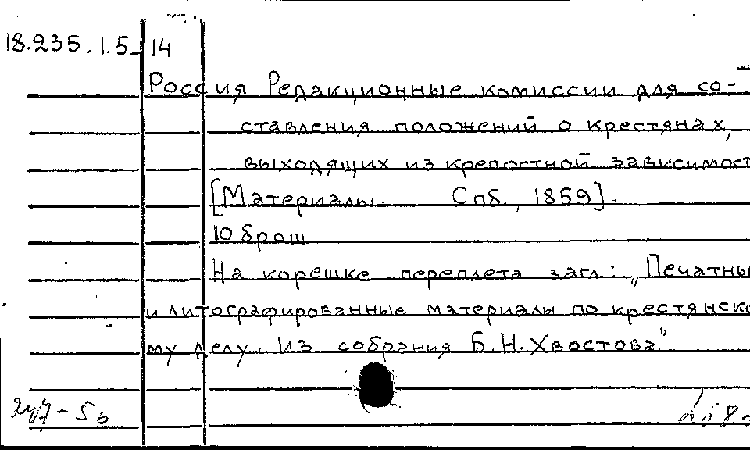 18.235.1.5 14
Россия Редакционные комиссии для со-
ставления положений о крестянах,
выходящих из крепостной зависимост
[Материалы. Спб., 1859].
10 брош
На корешке переплета загл: „Печатны
и литографированные материалы по крестянско
му делу. Из собрания Б.Н.Хвостова"